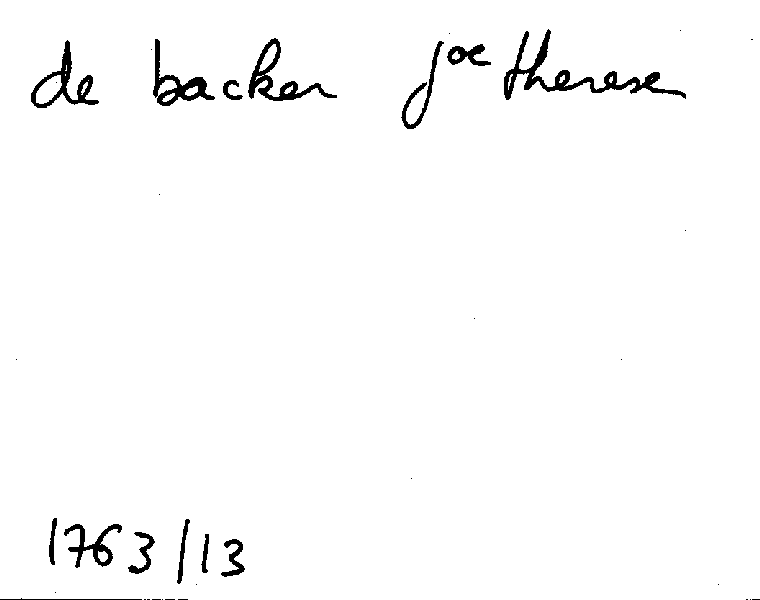 de backer joe therese
1763/13